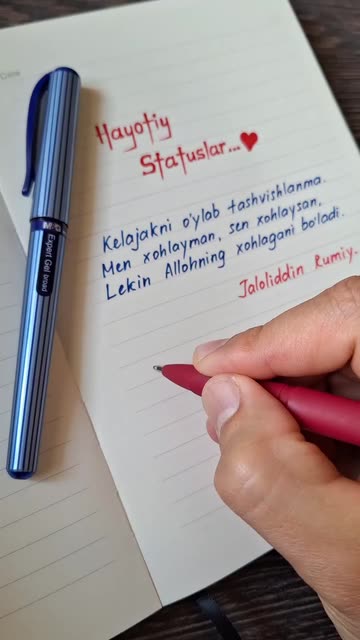 Date
Hayotiy
Statuslar...❤
Kelajakni o'ylab tashvishlanma.
Men xohlayman, sen xohlaysan,
Lekin Allohning xohlagani bo'ladi.
Jaloliddin Rumiy.
Expert Gel broad